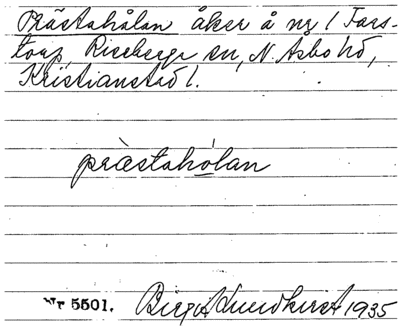 Prästahålan åker å nr 1 Fars-
torp, Riseberga sn, N. Åsbo hd,
Kristianstad l.
prästahòlan
Nr 5501. Birgit Lundkvist 1935